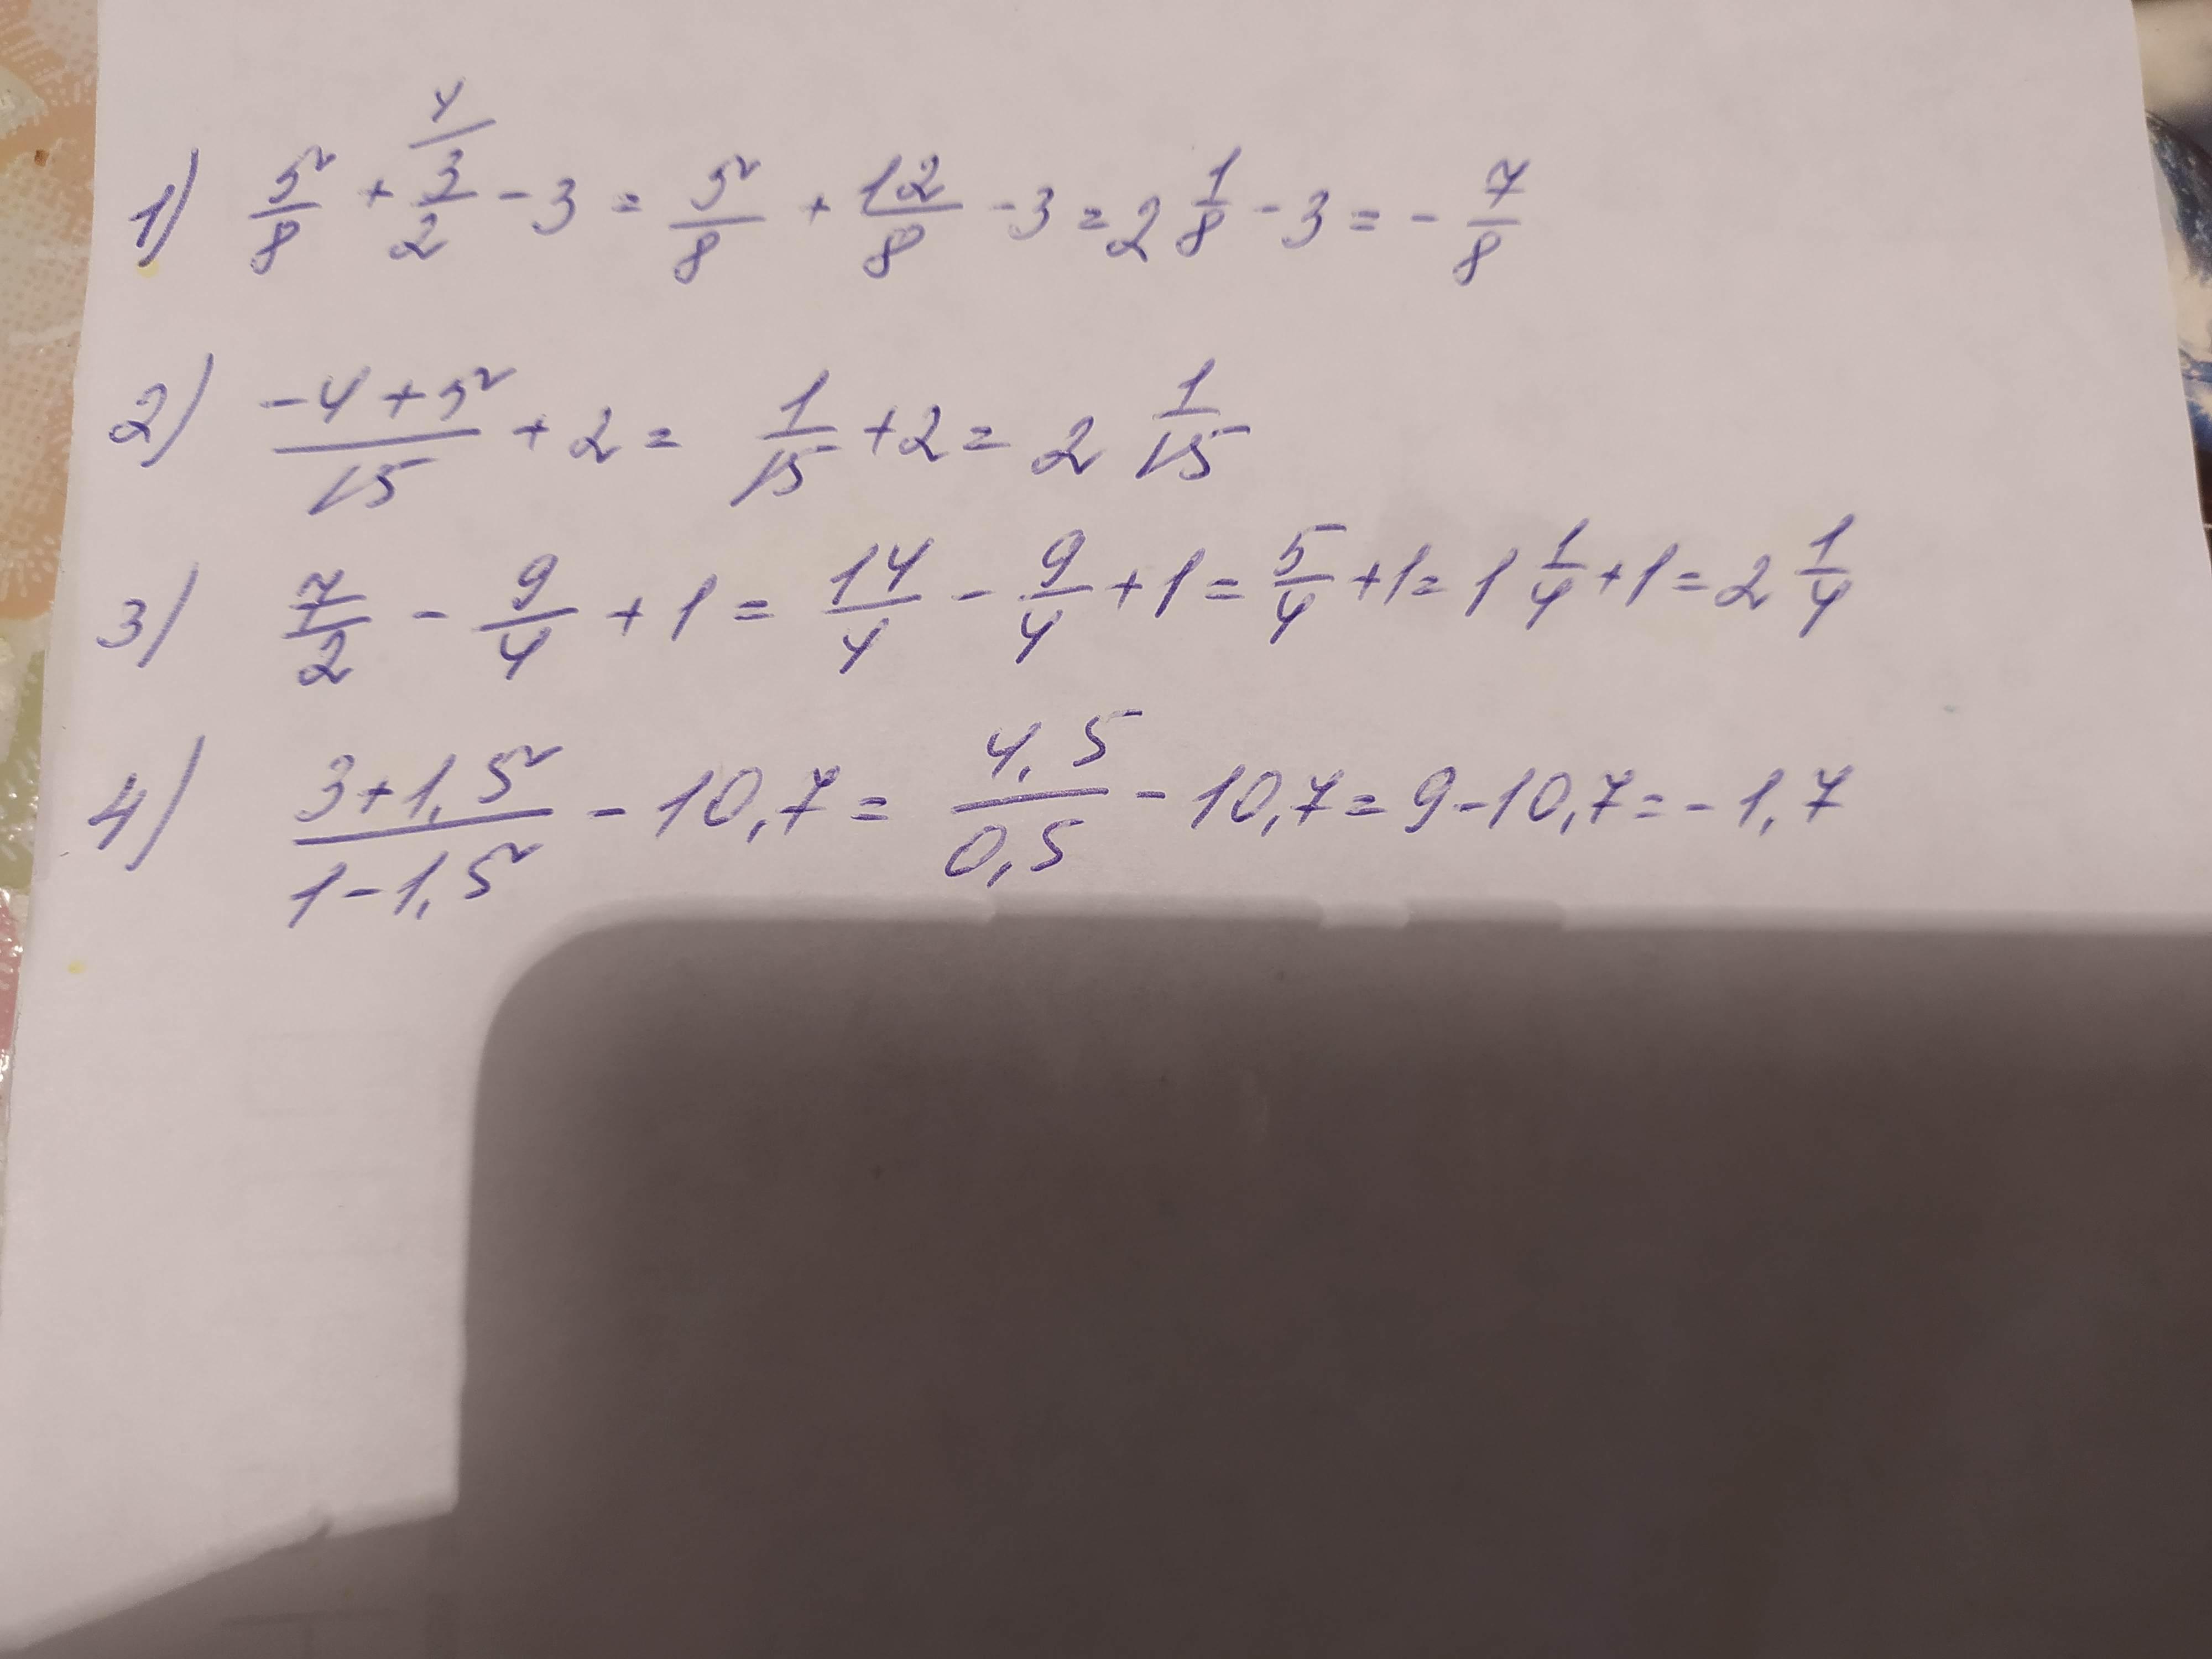 1) 5/8 + 4/3/2 - 3 = 5/8 + 12/8 - 3 = 2 1/8 - 3 = - 7/8
2) (-4+5)/15 + 2 = 1/15 + 2 = 2 1/15
3) 7/2 - 9/4 + 1 = 14/4 - 9/4 + 1 = 5/4 + 1 = 1 1/4 + 1 = 2 1/4
4) (3+1,5)/(1-1,5) - 10,7 = 4,5/0,5 - 10,7 = 9 - 10,7 = - 1,7